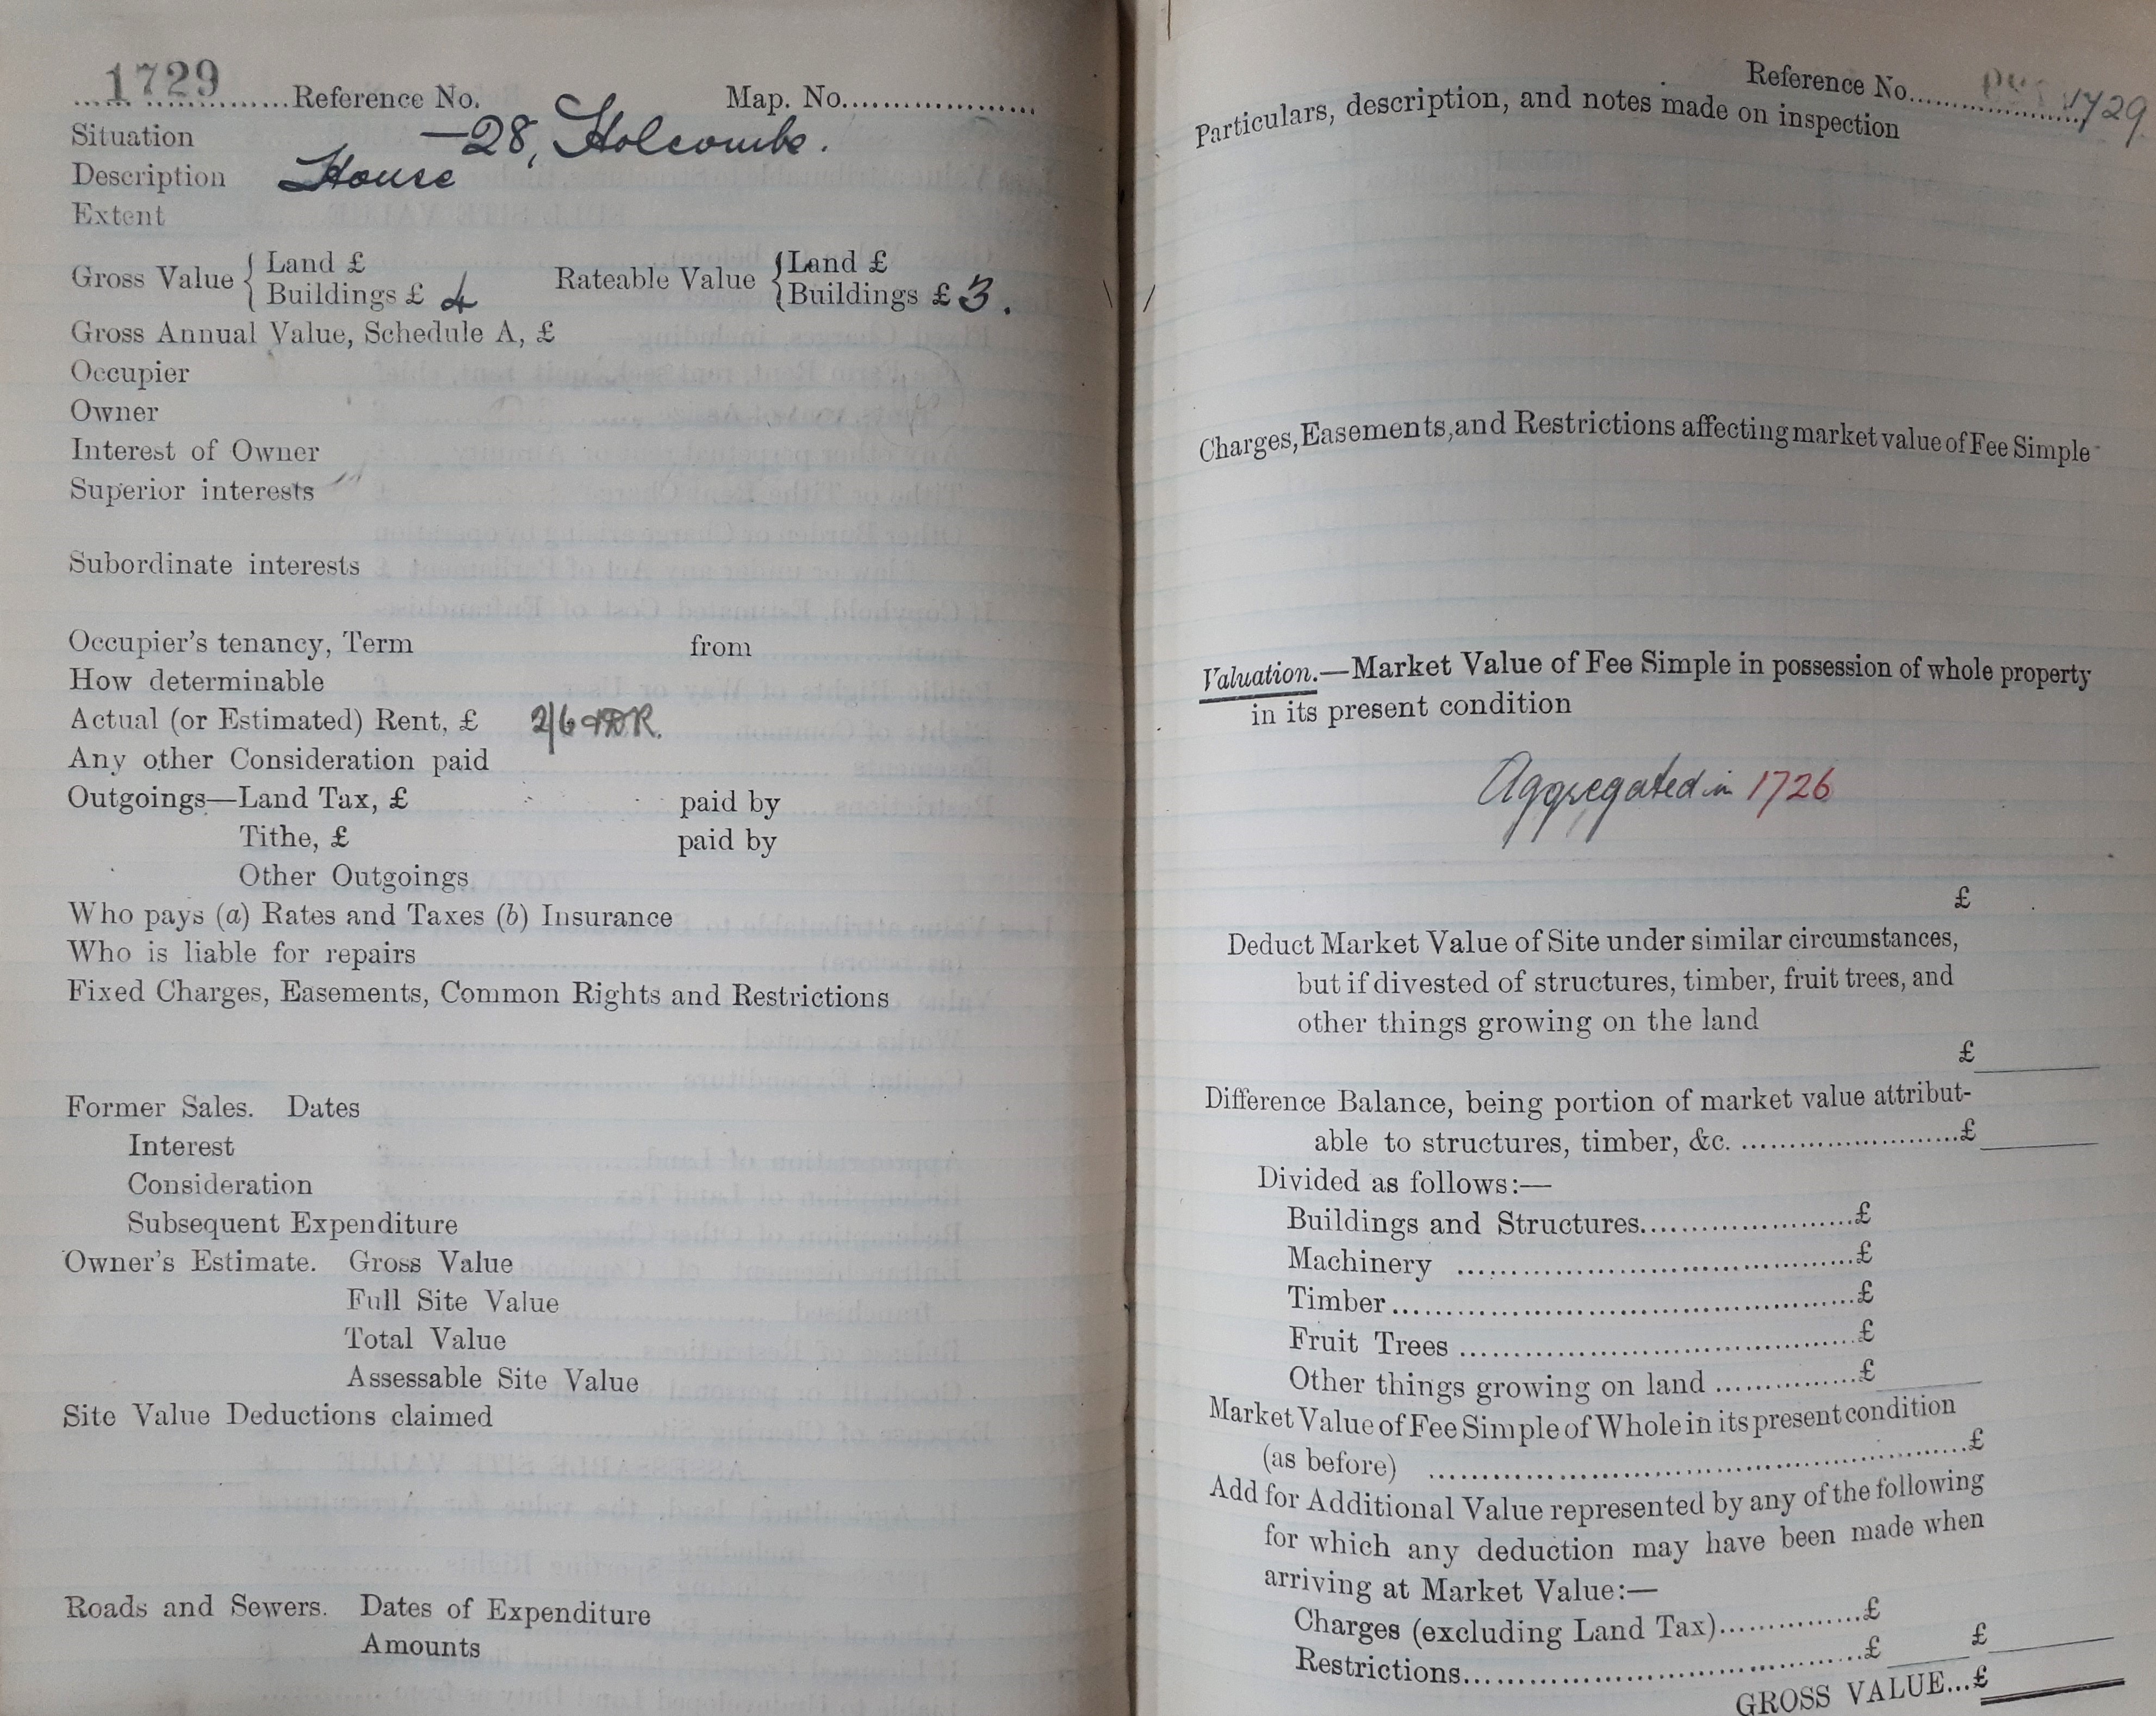 1729 Reference No. Map. No.
Situation -28, Holcombe.
Description House
Extent
Gross Value { Land £ Rateable Value { Land £
Buildings £ 4 Buildings £ 3.
Gross Annual Value, Schedule A, £
Occupier
Owner
Interest of Owner
Superior interests
Subordinate interests
Occupier's tenancy, Term from
How determinable
Actual (or Estimated) Rent, £ 2/6
Any other Consideration paid
Outgoings—Land Tax, £ paid by
Tithe, £ paid by
Other Outgoings
Who pays (a) Rates and Taxes (b) Insurance
Who is liable for repairs
Fixed Charges, Easements, Common Rights and Restrictions
Former Sales. Dates
Interest
Consideration
Subsequent Expenditure
Owner's Estimate. Gross Value
Full Site Value
Total Value
Assessable Site Value
Site Value Deductions claimed
Roads and Sewers. Dates of Expenditure
Amounts
Reference No. 1729
Particulars, description, and notes made on inspection
Charges, Easements, and Restrictions affecting market value of Fee Simple
Valuation.—Market Value of Fee Simple in possession of whole property
in its present condition
Aggregated in 1726
£
Deduct Market Value of Site under similar circumstances,
but if divested of structures, timber, fruit trees, and
other things growing on the land
£
Difference Balance, being portion of market value attribut-
able to structures, timber, &c. £
Divided as follows:—
Buildings and Structures £
Machinery £
Timber £
Fruit Trees £
Other things growing on land £
Market Value of Fee Simple of Whole in its present condition
(as before) £
Add for Additional Value represented by any of the following
for which any deduction may have been made when
arriving at Market Value:—
Charges (excluding Land Tax) £
Restrictions £ £
GROSS VALUE...£